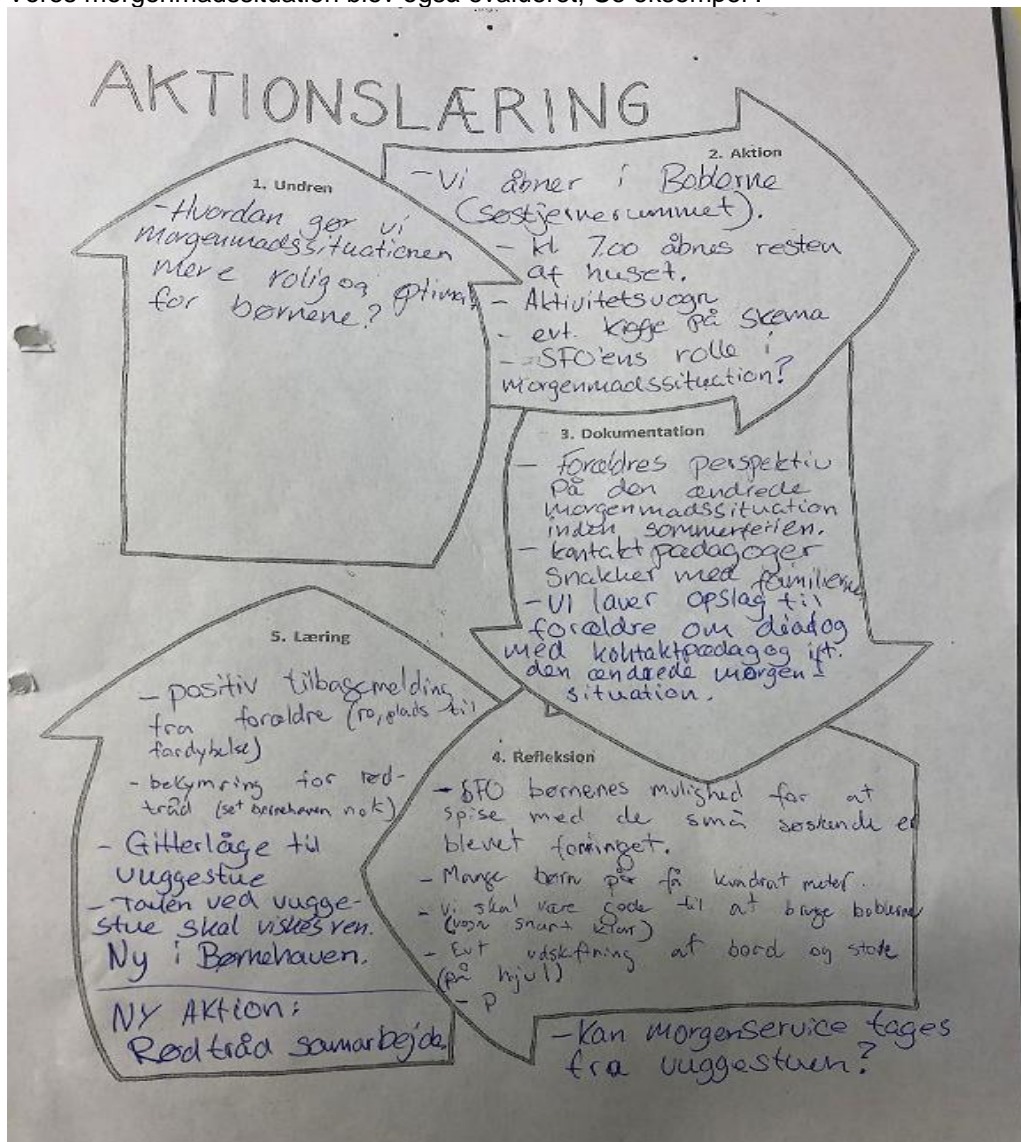 Vores morgenmadssituation blev også evalueret, Se eksempel :
AKTIONSLÆRING
1. Undren
- Hvordan gør vi
morgenmadssituationen
mere rolig og optimal
for børnene?
2. Aktion
- Vi åbner i Boblerne
(søstjernerummet).
- kl 7.00 åbnes resten
af huset.
- Aktivitetsvogn
- evt. kigge på skema
- SFO'ens rolle i
morgenmadssituation?
3. Dokumentation
- Forældres perspektiv
på den ændrede
morgenmadssituation
inden sommerferien.
- kontaktpædagoger
snakker med familierne
- Vi laver opslag til
forældre om dialog
med kontaktpædagog ift.
den ændrede morgen-
situation.
4. Refleksion
- SFO børnenes mulighed for at
spise med de små søskende er
blevet forringet.
- Mange børn på få kvadrat meter.
- Vi skal være gode til at bruge boblerne
(vogn snart klar)
- Evt udskiftning af bord og stole
(på hjul)
- P
- Kan morgenservice tages
fra vuggestuen?
5. Læring
- positiv tilbagemelding
fra forældre (ro, plads til
fordybelse)
- bekymring for rød-
tråd (set børnehaven nok)
- Gitterlåge til
vuggestue
- Tavlen ved vugge-
stue skal viskes ren.
Ny i Børnehaven.
NY AKtion:
Rød tråd samarbejde